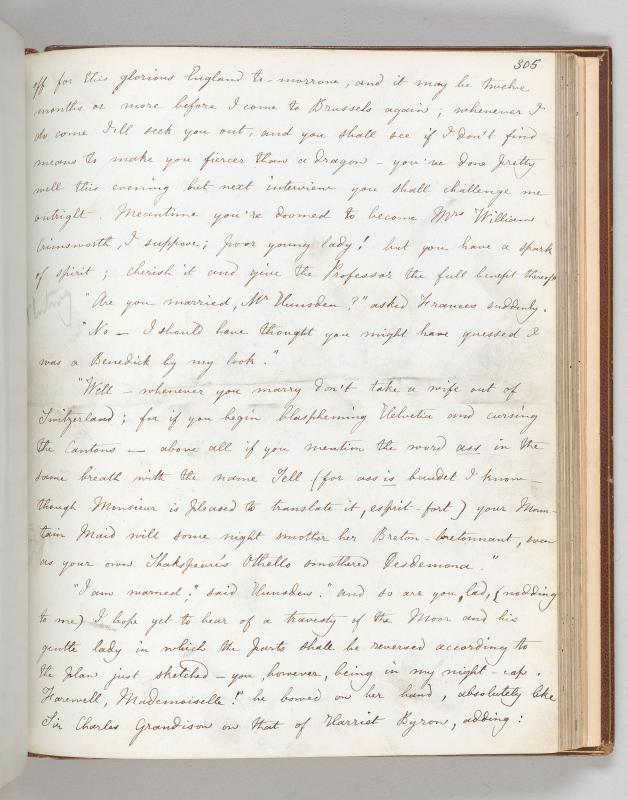 305
off for this glorious England to-morrow, and it may be twelve
months or more before I come to Brussels again; whenever I
do come I'll seek you out, and you shall see if I don't find
means to make you fiercer than a dragon - you've done pretty
well this evening but next interview you shall challenge me
outright. Meantime you're doomed to become Mrs William
Crimsworth, I suppose; poor young lady! but you have a spark
of spirit; cherish it and give the Professor the full benefit thereof."
"Are you married, Mr Hunsden?" asked Frances suddenly.
"No — I should have thought you might have guessed I
was a Benedick by my look."
"Well - whenever you marry don't take a wife out of
Switzerland; for if you begin blaspheming Helvetia and cursing
the Cantons — above all if you mention the word ass in the
same breath with the name Tell (for ass is baudet I know —
though Monsieur is pleased to translate it, esprit-fort) your Moun-
tain Maid will some night smother her Breton-bretonnant, even
as your own Shakspeare's Othello smothered Desdemona."
"I am warned;" said Hunsden." and so are you, lad, (nodding
to me) I hope yet to hear of a travesty of the Moor and his
gentle lady in which the parts shall be reversed according to
the plan just sketched - you, however, being in my night-cap.
Farewell, Mademoiselle!" he bowed on her hand, absolutely like
Sir Charles Grandison on that of Harriet Byron, adding: